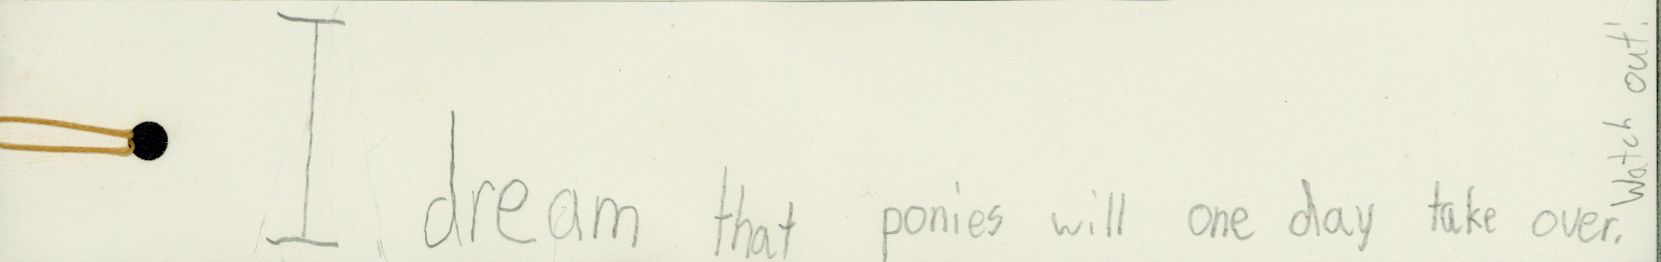 I dream that ponies will one day take over.
Watch out!